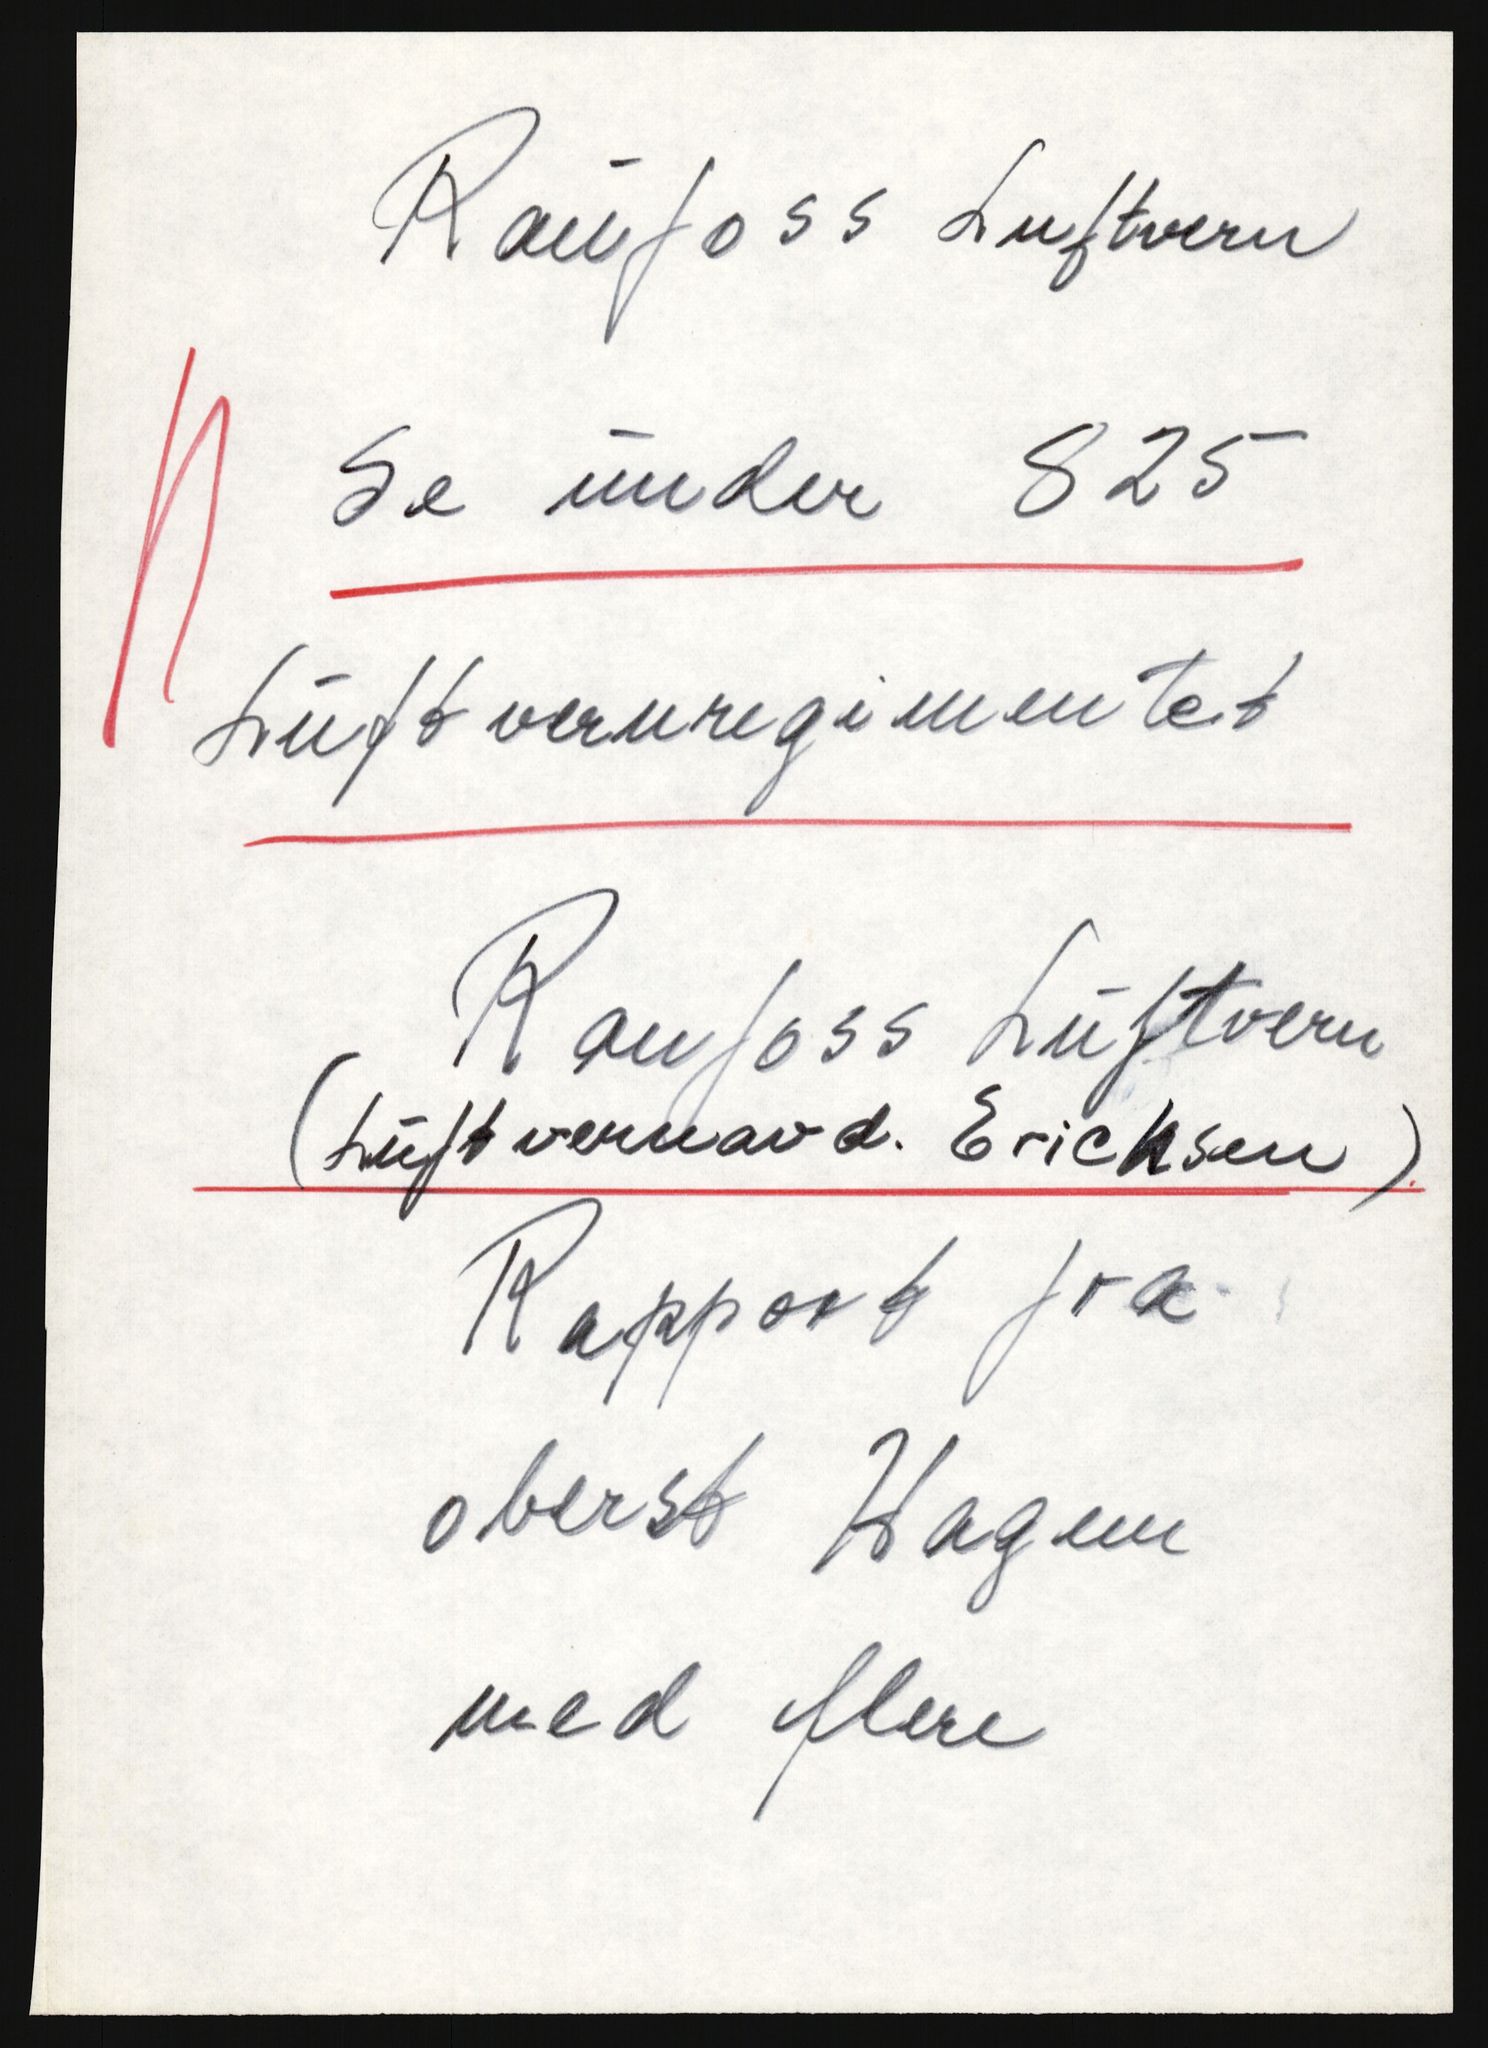 Raufoss Luftvern
Se under 825
Luftvernregimentet
Raufoss Luftvern
(Luftvernavd. Ericksen)
Rapport fra
oberst Hagem
med flere